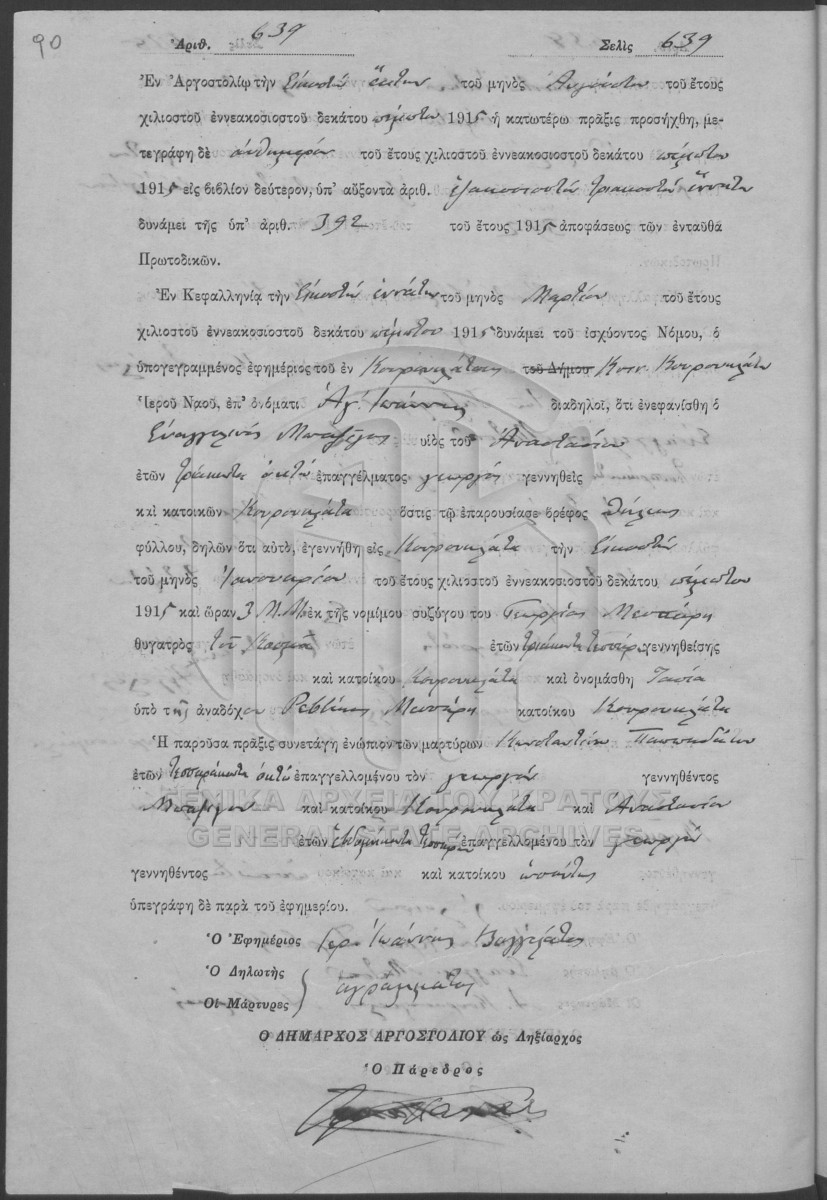 90
Ἀριθ. 639 Σελὶς 639
Ἐν Ἀργοστολίῳ τὴν Εἰκοστὴν ἕκτην τοῦ μηνὸς Αὐγούστου τοῦ ἔτους
χιλιοστοῦ ἐννεακοσιοστοῦ δεκάτου πέμπτου 1915 ἡ κατωτέρω πρᾶξις προσήχθη, με-
τεγράφη δὲ αὐθημερὸν τοῦ ἔτους χιλιοστοῦ ἐννεακοσιοστοῦ δεκάτου πέμπτου
1915 εἰς βιβλίον δεύτερον, ὑπ' αὔξοντα ἀριθ. ἑξακοσιοστὸν τριακοστὸν ἔννατον
δυνάμει τῆς ὑπ' ἀριθ. 392 τοῦ ἔτους 1915 ἀποφάσεως τῶν ἐνταῦθα
Πρωτοδικῶν.
Ἐν Κεφαλληνίᾳ τὴν Εἰκοστὴν ἐννάτην τοῦ μηνὸς Μαρτίου τοῦ ἔτους
χιλιοστοῦ ἐννεακοσιοστοῦ δεκάτου πέμπτου 1915 δυνάμει τοῦ ἰσχύοντος Νόμου, ὁ
ὑπογεγραμμένος ἐφημέριος τοῦ ἐν Κουρουκλάτοις τοῦ Δήμου Κοιν. Κουρουκλάτων
Ἱεροῦ Ναοῦ, ἐπ' ὀνόματι Ἁγ. Ἰωάννης διαδηλοῖ, ὅτι ἐνεφανίσθη ὁ
Εὐαγγελινός υἱὸς τοῦ Ἀναστασίου
ἐτῶν τριάκοντα ὀκτὼ ἐπαγγέλματος γεωργὸς γεννηθεὶς
καὶ κατοικῶν Κουρουκλάτα ὅστις τῷ ἐπαρουσίασε βρέφος θήλεος
φύλλου, δηλῶν ὅτι αὐτὸ, ἐγεννήθη εἰς Κουρουκλάτα τὴν Εἰκοστὴν
τοῦ μηνὸς Ἰανουαρίου τοῦ ἔτους χιλιοστοῦ ἐννεακοσιοστοῦ δεκάτου πέμπτου
1915 καὶ ὥραν 3 Μ.Μ. ἐκ τῆς νομίμου συζύγου του Γεωργίας
θυγατρὸς τοῦ Κοσμᾶ ἐτῶν τριάκοντα τεσσάρ. γεννηθείσης
καὶ κατοίκου Κουρουκλάτα καὶ ὀνομάσθη Τασία
ὑπὸ τῆς ἀναδόχου κατοίκου Κουρουκλάτα
Ἡ παροῦσα πρᾶξις συνετάγη ἐνώπιον τῶν μαρτύρων Κωνσταντίνου Παππαδάτου
ἐτῶν τεσσαράκοντα ὀκτὼ ἐπαγγελλομένου τὸν γεωργὸν γεννηθέντος
καὶ κατοίκου Κουρουκλάτα καὶ Ἀναστασίου
ἐτῶν ἑβδομήκοντα τεσσάρων ἐπαγγελλομένου τὸν γεωργὸν
γεννηθέντος καὶ κατοίκου ὡσαύτως
ὑπεγράφη δὲ παρὰ τοῦ ἐφημερίου.
Ὁ Ἐφημέριος Ἱερ. Ἰωάννης
Ὁ Δηλωτὴς
ἀγράμματος
Οἱ Μάρτυρες
Ο ΔΗΜΑΡΧΟΣ ΑΡΓΟΣΤΟΛΙΟΥ ὡς Ληξίαρχος
Ὁ Πάρεδρος
ΓΕΝΙΚΑ ΑΡΧΕΙΑ ΤΟΥ ΚΡΑΤΟΥΣ
GENERAL STATE ARCHIVES